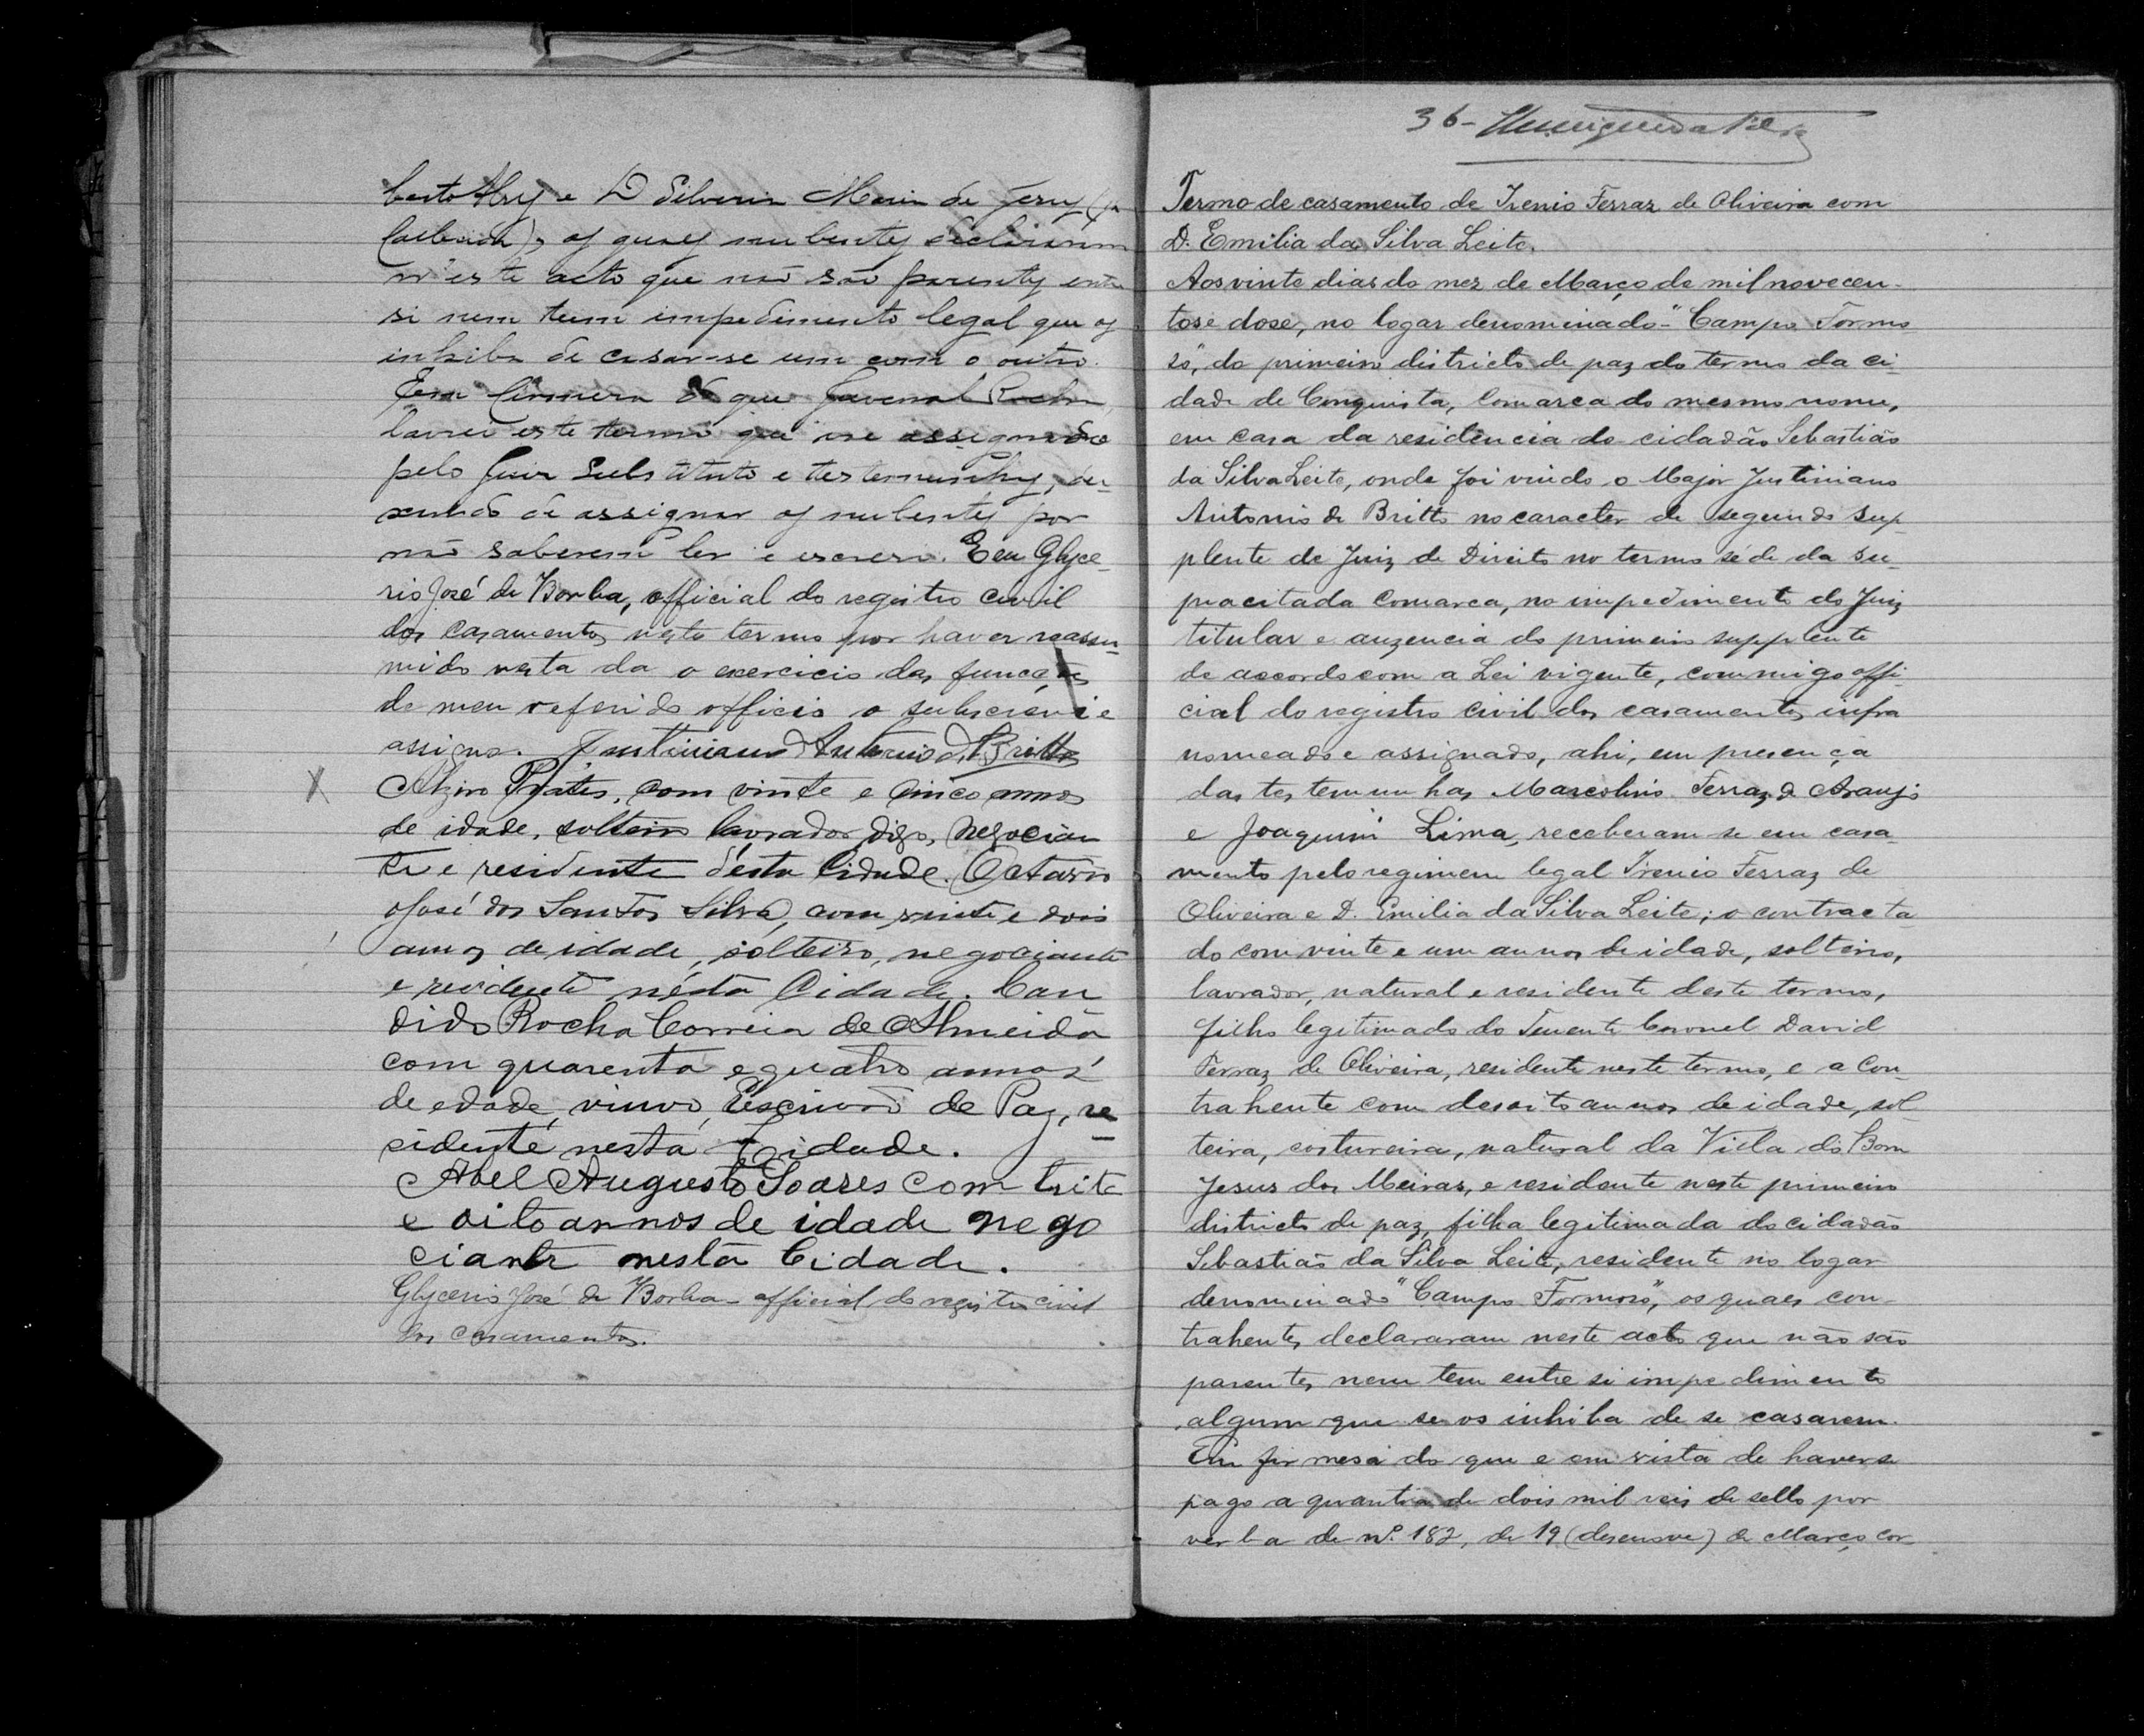 berto Alvz e D Silveria Maria de Jezuz (ja
fallecida), os quaes nubentes declararam
n'este acto que não são parentes entre
si nem teem impedimento legal que os
inhiba de casar-se um com o outro.
Em firmeza do que Juvenal Rocha,
lavrei este termo que vae assignado
pelo Juiz Substituto e testemunhas, dei-
xando de assignar os nubentes por
não saberem ler e escrever. E eu Glyce-
rio José de Borba, official do registro civil
dos casamentos neste termo por haver reassu-
mido nesta da o exercicio das funcções
de meu referido officio o subscrevi e
assigno. Justiniano Antonio de Britto
Alziro Prates, com vinte e cinco annos
de idade, solteiro lavrador, digo, negocian
te e residente désta Cidade. Octavio
José dos Santos Silva, com vinte e dois
annos de idade, solteiro, negociante
e residente nésta Cidade. Can
dido Rocha Correia de Almeida
com quarenta e quatro annos
de edade, viuvo, Escrivão de Paz, re
cidente nesta Cidade.
Abel Augusto Soares com trita
e oito annos de idade nego
ciante nesta Cidade.
Glycerio José de Borba - official do registro civil
dos casamentos.
36-
Termo de casamento de Irenio Ferraz de Oliveira com
D. Emilia da Silva Leite.
Aos vinte dias do mez de Março de mil novecen-
tos e dose, no logar denominado - "Campo Formo-
so", do primeiro districto de paz do termo da ci-
dade de Conquista, Comarca do mesmo nome,
em casa da residencia do cidadão Sebastião
da Silva Leite, onde foi vindo o Major Justiniano
Antonio de Britto no caracter de segundo sup-
plente de Juiz de Direito no termo séde da su-
pracitada comarca, no impedimento do Juiz
titular e auzencia do primeiro supplente
de accordo com a Lei vigente, commigo offi-
cial do registro civil dos casamentos infra
nomeado e assignado, ahi, em presença
das testemunhas Marcolino Ferraz de Araujo
e Joaquim Lima, receberam-se em casa-
mento pelo regimem legal Irenio Ferraz de
Oliveira e D. Emilia da Silva Leite; o contracta-
do com vinte e um annos de idade, solteiro,
lavrador, natural e residente deste termo,
filho legitimado do Tenente Coronel David
Ferraz de Oliveira, residente neste termo, e a con-
trahente com desoito annos de idade, sol-
teira, costureira, natural da Villa do Bom
Jesus dos Meiras, e residente neste primeiro
districto de paz, filha legitimada do cidadão
Sebastião da Silva Leite, residente no logar
denominado "Campo Formoso", os quaes con-
trahentes declararam neste acto que não são
parentes nem tem entre si impedimento
algum que se os inhiba de se casarem.
Em firmesa do que e em vista de haver se
pago a quantia de dois mil reis de sello por
verba de nº 182, de 19 (desenove) de Março cor-